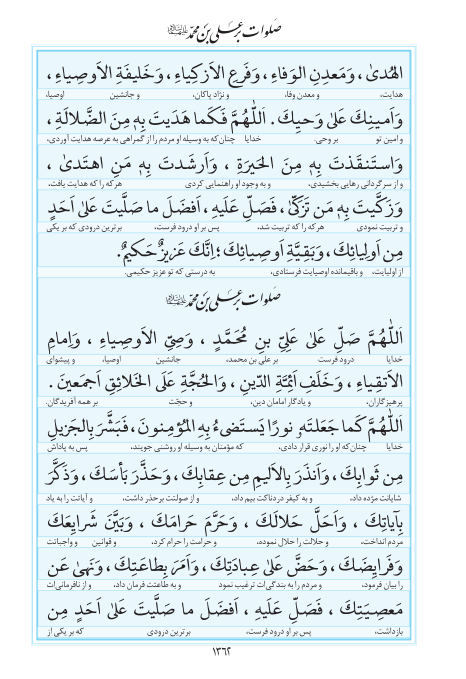 صلوات بر علی بن محمّد
الهُدىٰ ، وَمَعدِنِ الوَفاءِ ، وَفَرعِ الاَزكِياءِ ، وَخَليفَةِ الاَوصِياءِ ،
هدایت، و معدن وفا، و نژاد پاکان، و جانشین اوصیا،
وَاَمينِكَ عَلىٰ وَحيِكَ . اَللّٰهُمَّ فَكَما هَدَيتَ بِهِ مِنَ الضَّلالَةِ ،
و امین تو بر وحی. خدایا چنان‌که به وسیله او مردم را از گمراهی به عرصه هدایت آوردی،
وَاستَنقَذتَ بِهِ مِنَ الحَيرَةِ ، وَاَرشَدتَ بِهِ مَنِ اهتَدىٰ ،
و از سرگردانی رهایی بخشیدی، و به وجود او راهنمایی کردی هرکه را که هدایت یافت،
وَزَكَّيتَ بِهِ مَن تَزَكّىٰ ، فَصَلِّ عَلَيهِ ، اَفضَلَ ما صَلَّيتَ عَلىٰ اَحَدٍ
و تربیت نمودی هرکه را که تربیت شد، پس بر او درود فرست، برترین درودی که بر یکی
مِن اَولِيائِكَ ، وَبَقِيَّةِ اَوصِيائِكَ ؛ اِنَّكَ عَزيزٌ حَكيمٌ.
از اولیایت، و باقیمانده اوصیایت فرستادی، به درستی که تو عزیز حکیمی.
صلوات بر علی بن محمّد
اَللّٰهُمَّ صَلِّ عَلىٰ عَلِيِّ بنِ مُحَمَّدٍ ، وَصِيِّ الاَوصِياءِ ، وَاِمامِ
خدایا درود فرست بر علی بن محمد، جانشین اوصیا، و پیشوای
الاَتقِياءِ ، وَخَلَفِ اَئِمَّةِ الدّينِ ، وَالحُجَّةِ عَلَى الخَلائِقِ اَجمَعينَ .
پرهیزگاران، و یادگار امامان دین، و حجّت بر همه آفریدگان.
اَللّٰهُمَّ كَما جَعَلتَهُ نورًا يَستَضىءُ بِهِ المُؤمِنونَ ، فَبَشَّرَ بِالجَزيلِ
خدایا چنان‌که او را نوری قرار دادی، که مؤمنان به وسیله او روشنی جویند، پس به پاداش
مِن ثَوابِكَ ، وَاَنذَرَ بِالاَليمِ مِن عِقابِكَ ، وَحَذَّرَ بَأسَكَ ، وَذَكَّرَ
شایانت مژده داد، و به کیفر دردناکت بیم داد، و از صولتت برحذر داشت، و آیاتت را به یاد
بِآياتِكَ ، وَاَحَلَّ حَلالَكَ ، وَحَرَّمَ حَرامَكَ ، وَبَيَّنَ شَرايِعَكَ
مردم انداخت، و حلالت را حلال نموده، و حرامت را حرام کرد، و قوانین و واجباتت
وَفَرايِضَكَ ، وَحَضَّ عَلىٰ عِبادَتِكَ ، وَاَمَرَ بِطاعَتِكَ ، وَنَهىٰ عَن
را بیان فرمود، و مردم را به بندگی‌ات ترغیب نمود و به طاعتت فرمان داد، و از نافرمانی‌ات
مَعصِيَتِكَ ، فَصَلِّ عَلَيهِ ، اَفضَلَ ما صَلَّيتَ عَلىٰ اَحَدٍ مِن
بازداشت، پس بر او درود فرست، برترین درودی که بر یکی از
۱۳۶۲